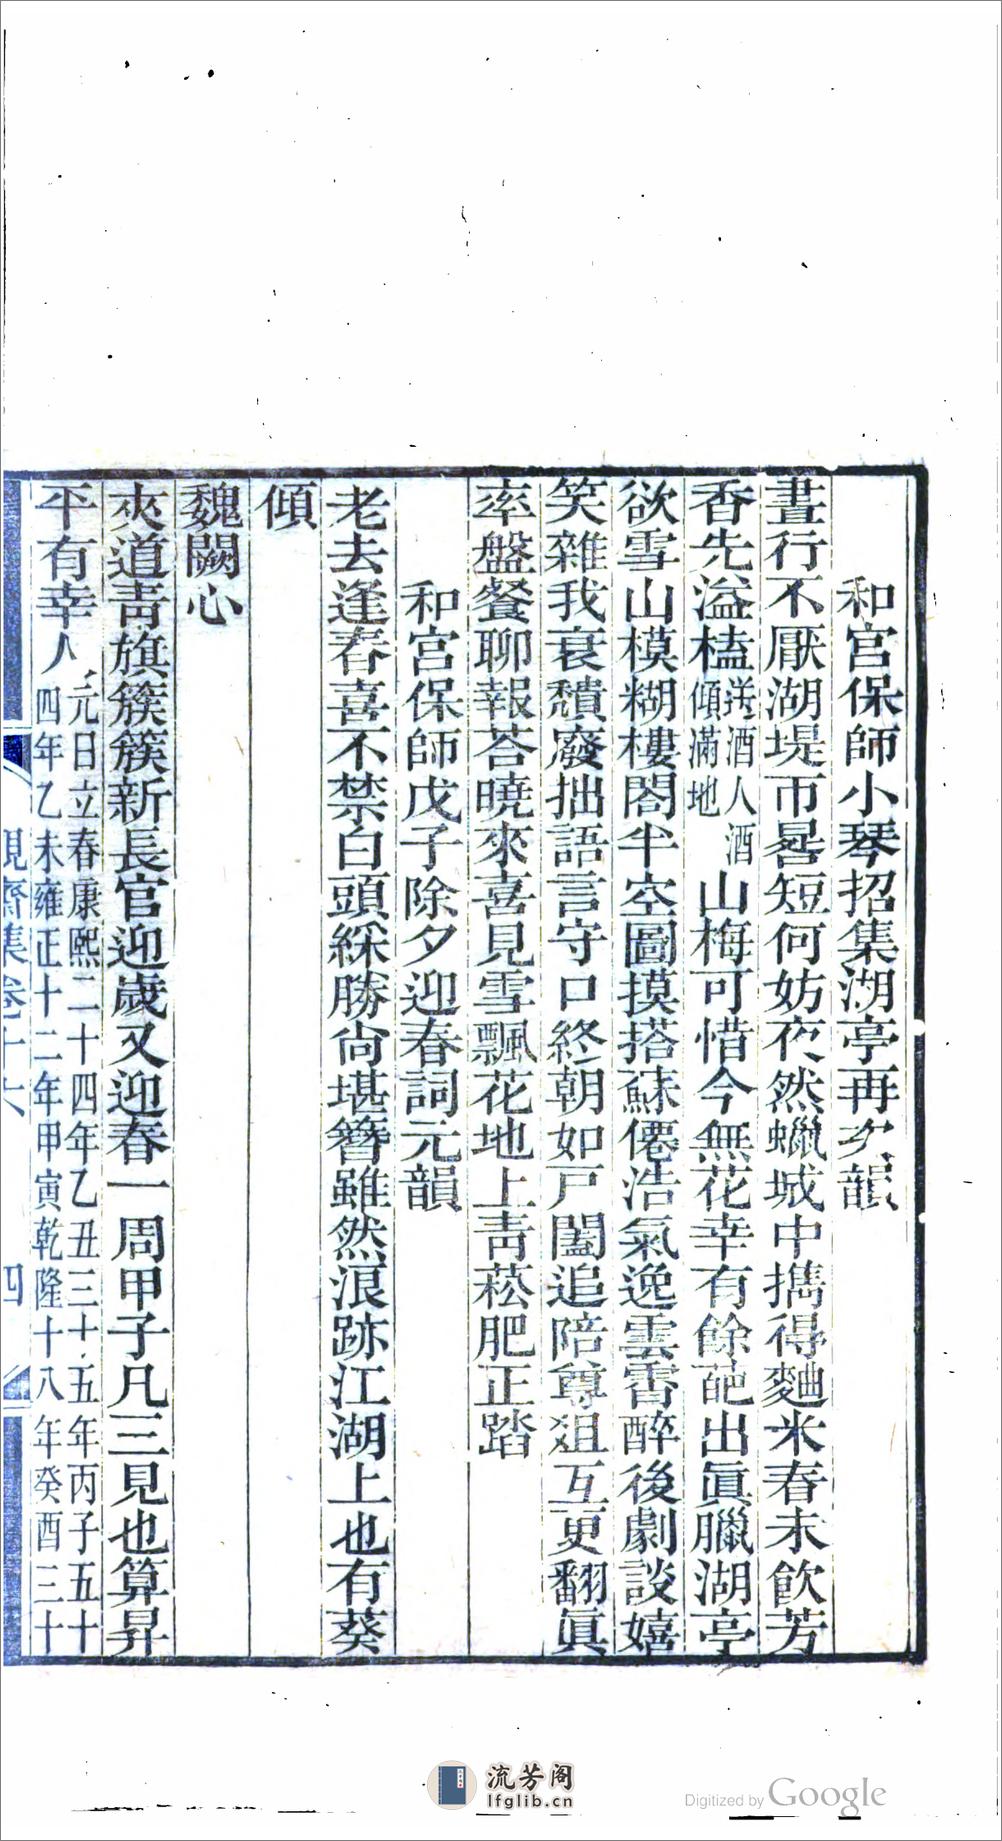 和宮保師小琴招集湖亭再次韻
晝行不厭湖堤帀晷短何妨夜然蠟城中攜得麴米春未飲芳
香先溢榼送酒人酒傾滿地山梅可惜今無花幸有餘葩出眞臘湖亭
欲雪山模糊樓閣半空圖摸搭蘇僊浩氣逸雲霄醉後劇談嬉
笑雜我衰穨廢拙語言守口終朝如戸闔追陪尊俎互更翻眞
率盤餐聊報荅曉來喜見雪飄花地上靑菘肥正踏
和宮保師戊子除夕迎春詞元韻
老去逢春喜不禁白頭綵勝尙堪簪雖然浪跡江湖上也有葵
傾
魏闕心
夾道靑旗簇簇新長官迎歲又迎春一周甲子凡三見也算昇
平有幸人元日立春康熙二十四年乙丑三十五年丙子五十
四年乙未雍正十二年甲寅乾隆十八年癸酉三十
齋集卷十六
四
流芳阁
lfglib.cn
Digitized by Google